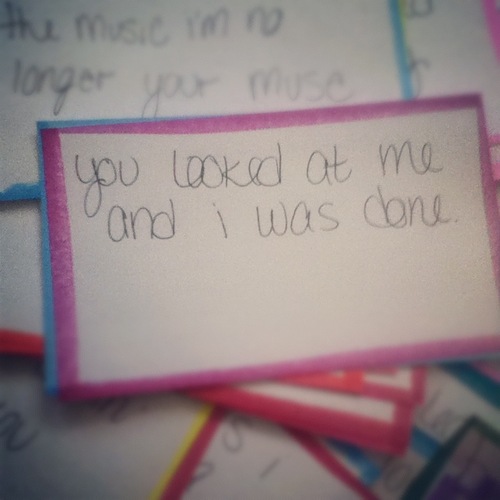 the music im no
longer your muse
you looked at me
and i was done.